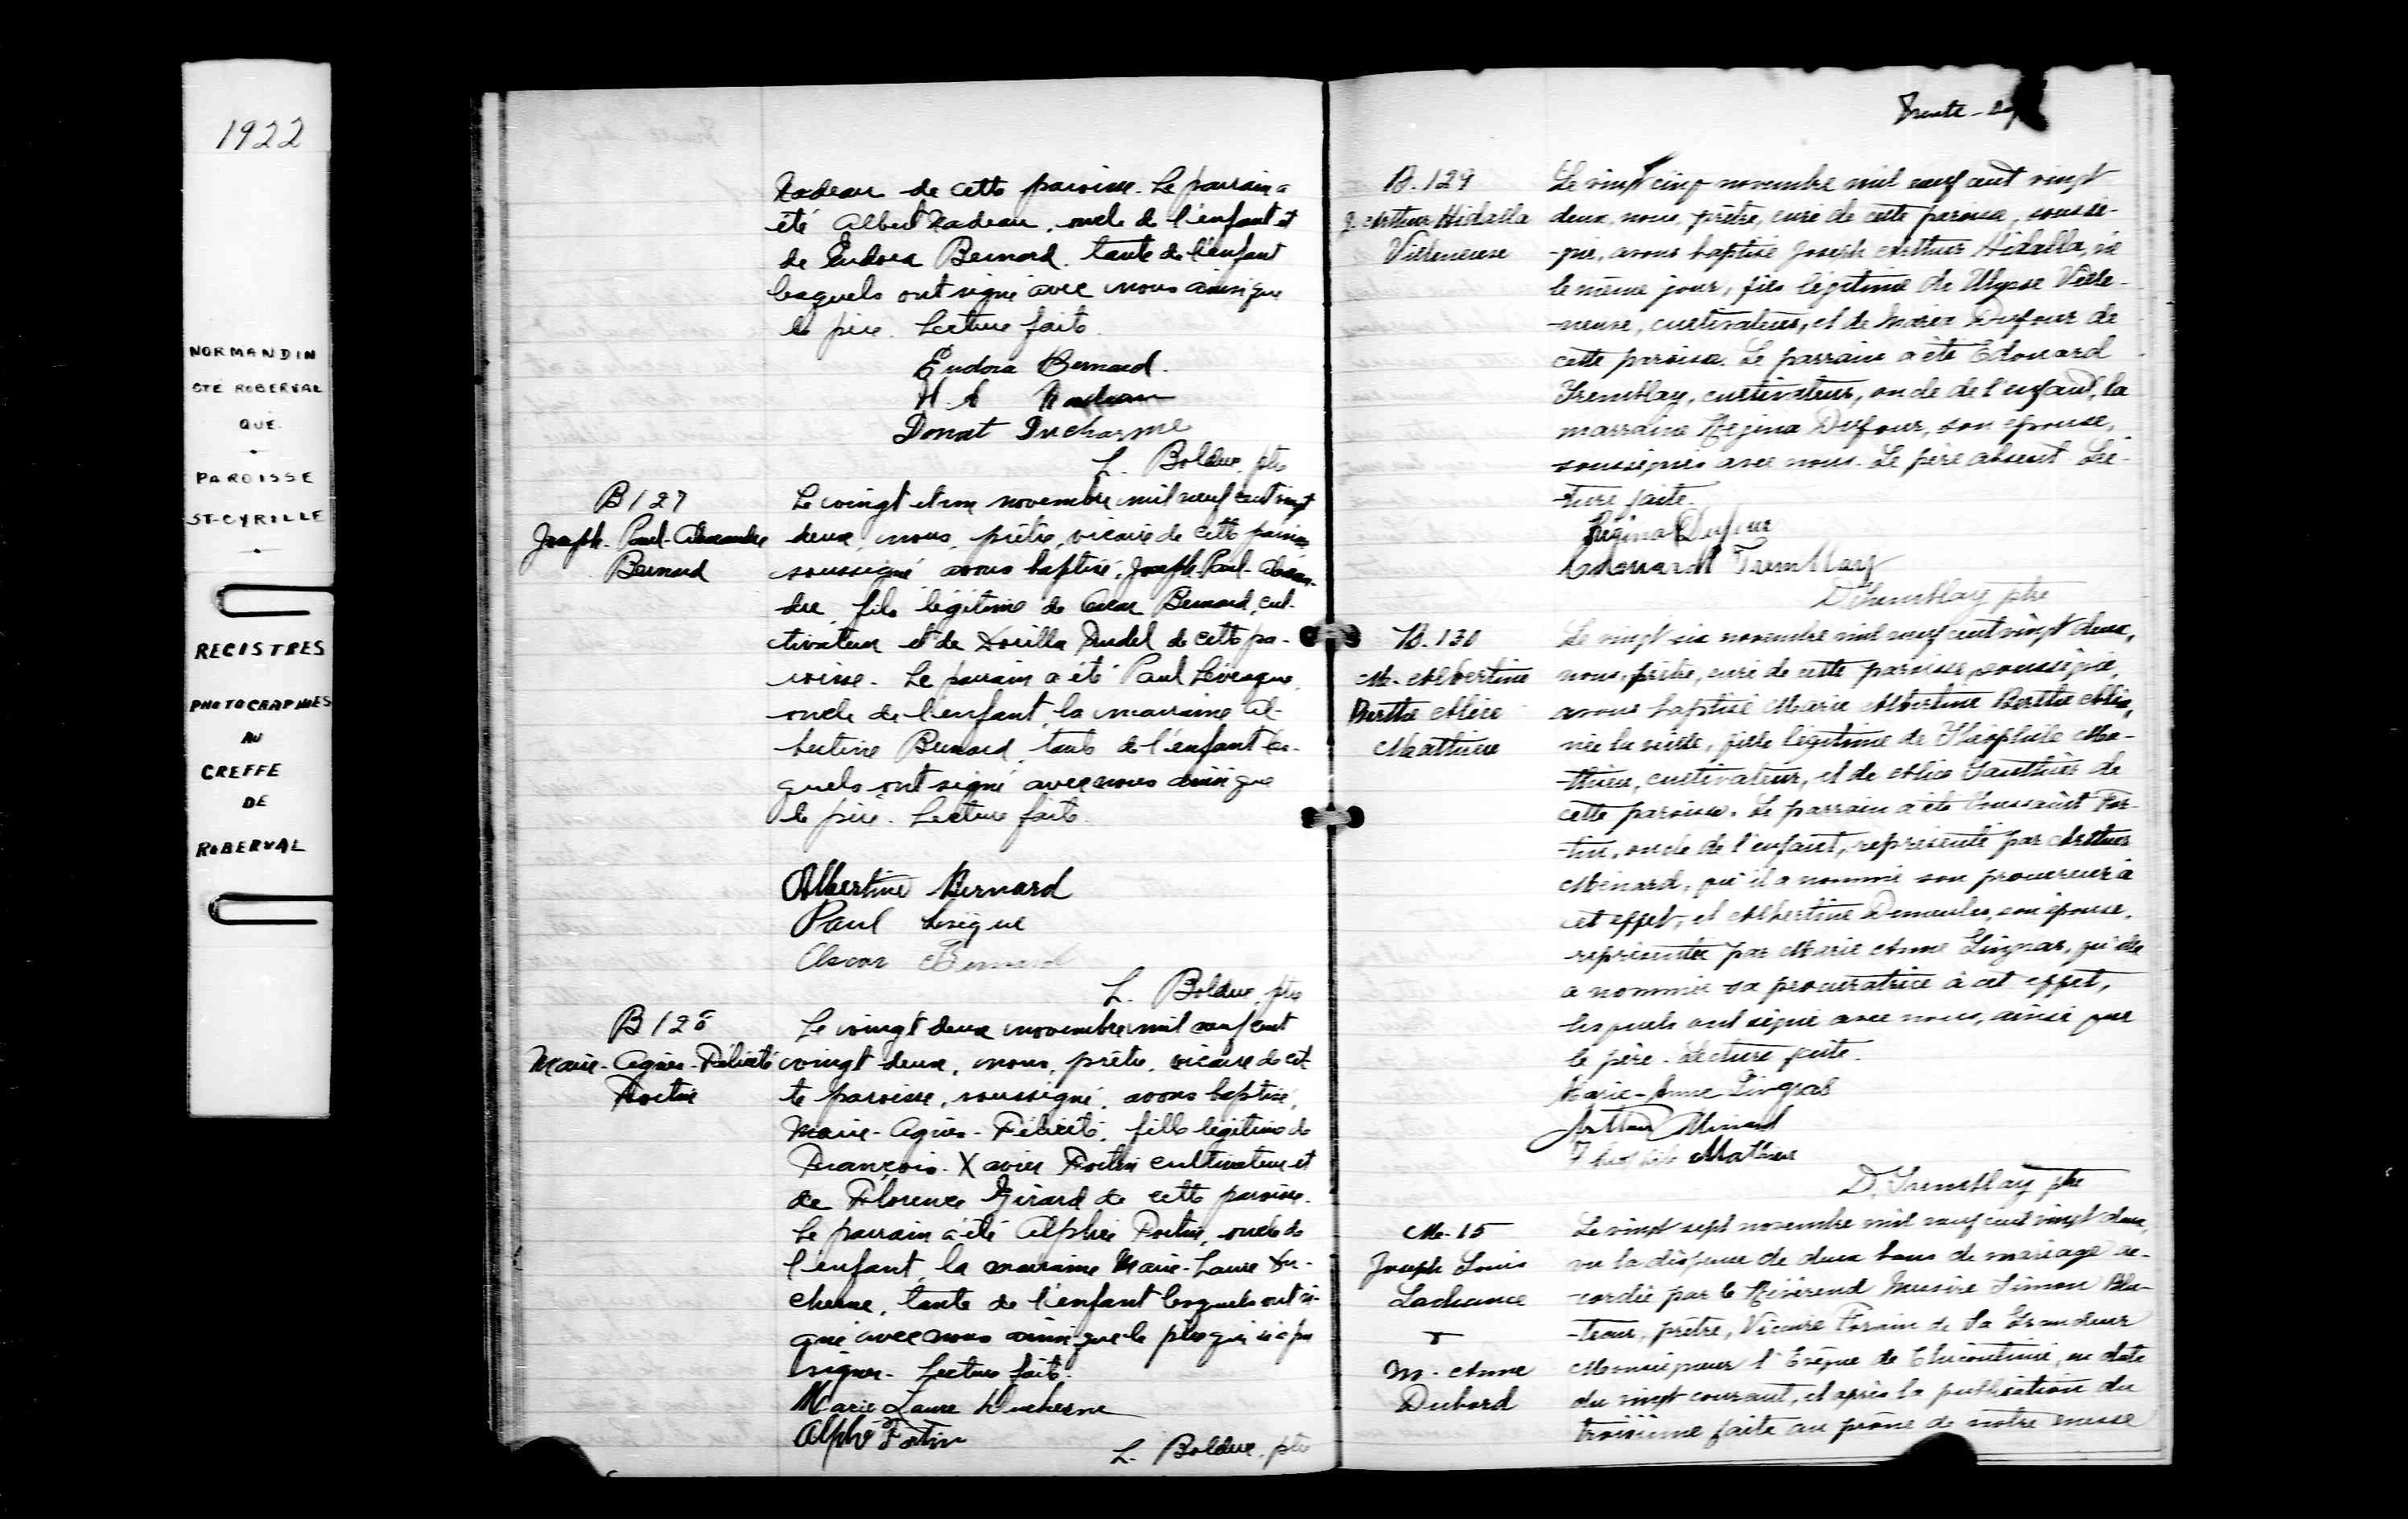 1922
NORMANDIN
CTÉ ROBERVAL
QUÉ.
PAROISSE
ST-CYRILLE
REGISTRES
PHOTOGRAPHIÉS
AU
GREFFE
DE
ROBERVAL
Nadeau de cette paroisse. Le parrain a
été Albert Nadeau, oncle de l'enfant et
de Eudora Bernard, tante de l'enfant
lesquels ont signé avec nous ainsi que
le père. Lecture faite.
Eudora Bernard.
H. A Nadeau
Donat Ducharme
L. Bolduc, ptre
B 127
Joseph-Paul-Alexandre
Bernard
Le vingt et un novembre mil neuf cent vingt
deux, nous, prêtre, vicaire de cette paroisse
soussigné avons baptisé, Joseph-Paul-Alexan-
dre, fils légitime de Oscar Bernard, cul-
tivateur et de Trudel de cette pa-
roisse. Le parrain a été Paul Lévesque,
oncle de l'enfant, la marraine Al-
bertine Bernard, tante de l'enfant les-
quels ont signé avec nous ainsi que
le père. Lecture faite.
Albertine Bernard
Paul
Oscar Bernard
L. Bolduc, ptre
B 128
Marie-Agnès-Félicité
Fortin
Le vingt deux novembre mil neuf cent
vingt deux, nous, prêtre, vicaire de cet-
te paroisse, soussigné, avons baptisé,
Marie-Agnès-Félicité, fille légitime de
François-Xavier Fortin cultivateur et
de Florence Girard de cette paroisse.
Le parrain a été Alphée Fortin, oncle de
l'enfant, la marraine Marie-Laure Du-
chesne, tante de l'enfant lesquels ont si-
gné avec nous ainsi que le père qui n'a pu
signer. Lecture faite.
Marie Laure Duchesne
Alphé Fortin
L. Bolduc, ptre
Trente-
B. 129
J. Arthur Hidalla
Villeneuve
Le vingt cinq novembre mil neuf cent vingt
deux, nous, prêtre, curé de cette paroisse, soussi-
-gné, avons baptisé Joseph Arthur Hidalla, né
le même jour, fils légitime de Ulysse Ville-
-neuve, cultivateur, et de Maria Dufour de
cette paroisse. Le parrain a été Edouard
Tremblay, cultivateur, oncle de l'enfant, la
marraine Régina Dufour, son épouse,
soussignés avec nous. Le père absent. Lec-
-ture faite.
Régina Dufour
Edouard Tremblay
D Tremblay ptre
B. 130
M. Albertine
Berthe Alice
Mathieu
Le vingt-six novembre mil neuf cent vingt deux,
nous, prêtre, curé de cette paroisse, soussigné,
avons baptisé Marie Albertine Berthe Alice,
née la veille, fille légitime de Théophile Ma-
-thieu, cultivateur, et de Alice Gauthier de
cette paroisse. Le parrain a été Toussaint For-
-tin, oncle de l'enfant, représenté par Arthur
Ménard, qu'il a nommé son procureur à
cet effet, et Albertine Demeules, son épouse,
représentée par Marie Anne Gingras, qu'elle
a nommée sa procuratrice à cet effet,
lesquels ont signé avec nous, ainsi que
le père. Lecture faite.
Marie-Anne Gingras
Arthur Ménard
Théophile Mathieu
D. Tremblay ptre
M. 15
Joseph Louis
Lachance
&
M. Anne
Dubord
Le vingt sept novembre mil neuf cent vingt deux,
vu la dispense de deux bans de mariage ac-
-cordée par le Révérend Messire Simon Blu-
-teau, prêtre, Vicaire Forain de Sa Grandeur
Monseigneur l'Evêque de Chicoutimi, en date
du vingt courant, et après la publication du
troisième faite au prône de notre messe